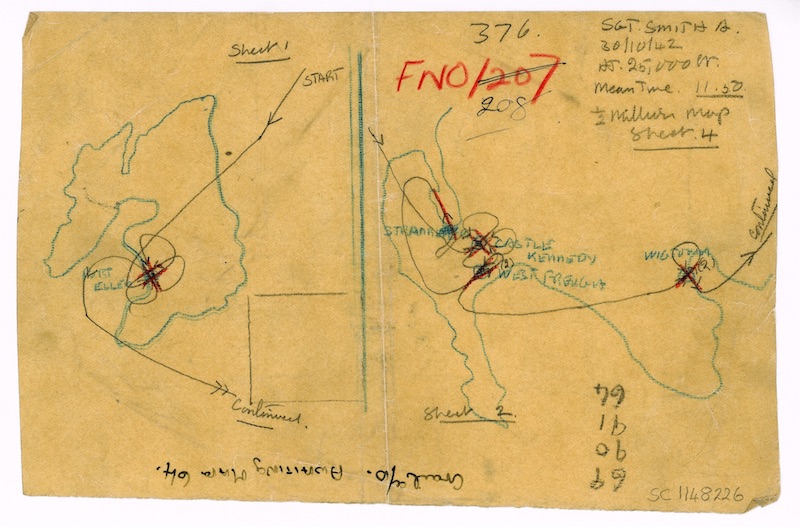 Sheet 1
START
PORT
ELLEN
Continued.
376.
FNO/207
208
SGT. SMITH A.
30/10/42
AT. 25,000 ft.
Mean Time. 11.50.
½ Million Map
Sheet 4
STRANRAER
CASTLE
KENNEDY
(2)
WEST FREUGH
WIGTOWN
(2)
Continued
Sheet 2.
64
91
90
69
AWAITING
SC 1148226